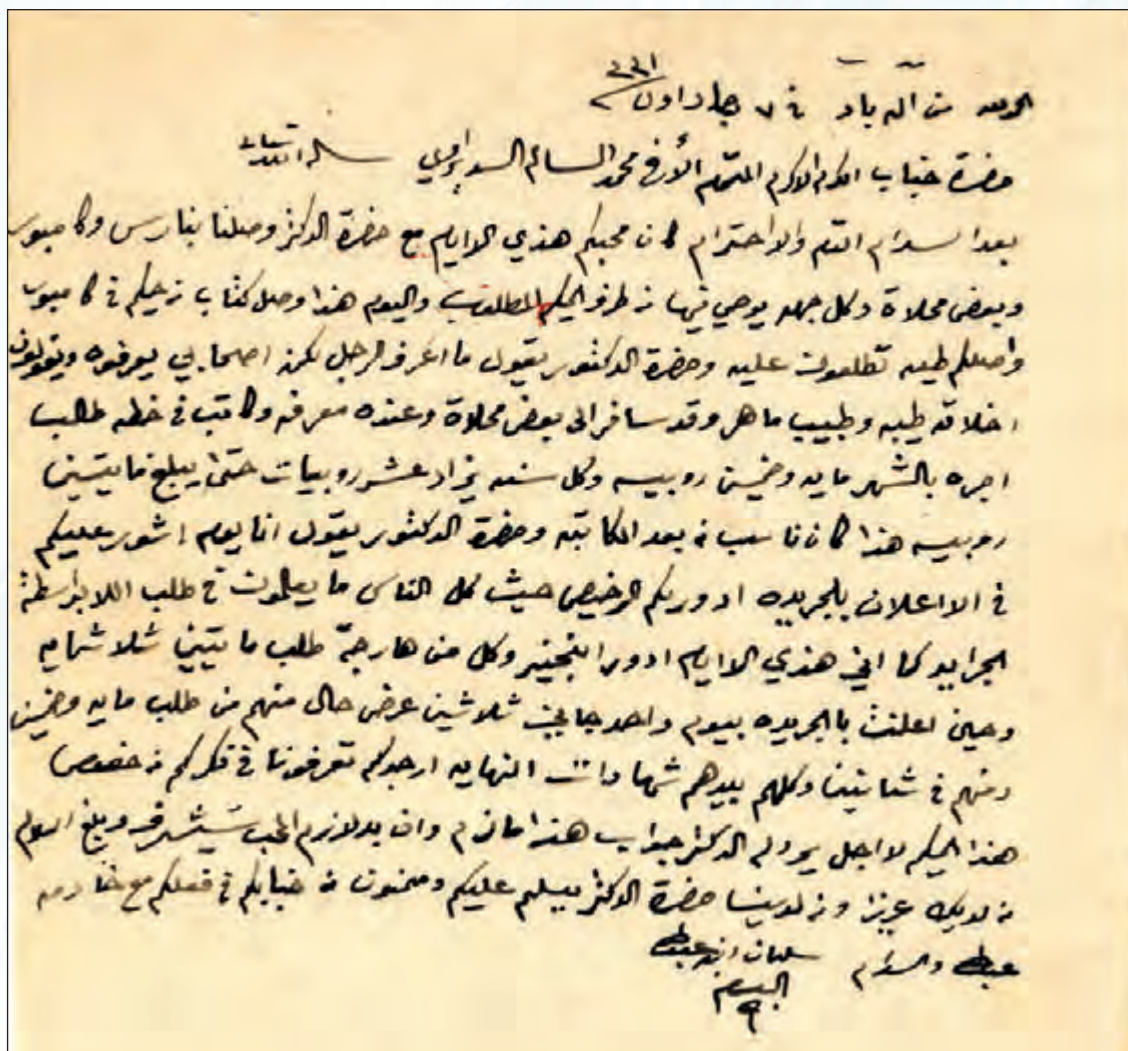 الحمد لله من اله باد في ٧ جماد اول ١٣٣١
حضرة جناب المكرم الاكرم المحترم الأفخم محمد السالم السديراوي سلمه الله تعالى
بعد السلام التام والاحترام كان محبكم هذي الايام مع حضرة الدكتر وصلنا بنارس وكامبور
وبعض محلاة وكل جهه يوصي فيها من طرف الحكيم المطلوب واليوم هذا وصل كتاب من حكيم في كامبور
واصلكم طيه تطلعون عليه وحضرة الدكتور يقول ما اعرف الرجل لكن اصحابي يعرفوه ويقولون
اخلاقه طيبه وطبيب ماهر وقد سافر الى بعض محلاة وعنده معرفه وكاتب في خطه طالب
اجره بالشهر مايه وخمسين روبيه وكل سنه يزاد عشر روبيات حتى يبلغ مايتين
روبيه هذا كان ناسب من بعد المكاتبه وحضرة الدكتور يقول انا يوم اشور عليكم
في الااعلان بلجريده ادور لكم الرخيص حيث كل الناس ما يعلمون في طلب اللا بواسطة
الجرايد كما اني هذي الايام ادور انجنير وكل من هارجة طلب مايتين ثلاثمايه
وحين اعلنت بالجريده بيوم واحد جاني ثلاثين عرض حال منهم من طلب مايه وخمسين
ومنهم في ثمانين وكلهم بيدهم شهادات النهايه ارجوكم تعرفونا في فكركم من خصوص
هذا الحكيم لااجل يرد له الدكتر جواب هذا مالزم وان بد لازم المحب يتشرف وبلغ السلام
من لديك عزيز ومن لدينا حضرة الدكتر يسلم عليكم وممنون من جنابكم في فعلكم مع خادمه
عبدالله والسلام سلمان ابن عبدالله
البسام